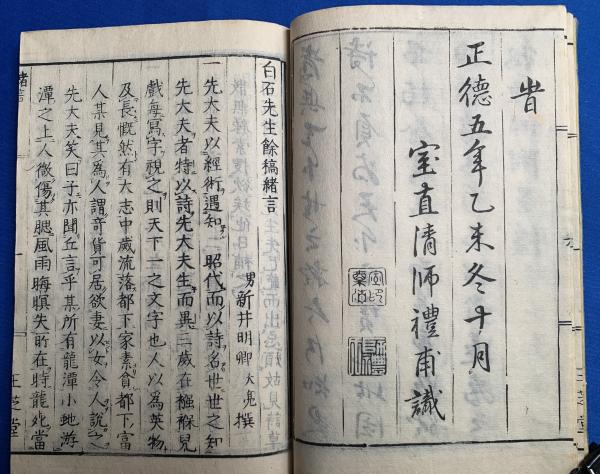 旹
正德五年乙未冬十月
室直清師禮甫識
白石先生餘稿緒言
男新井明卿大亮撰
一先大夫以經術遇知 昭代而以詩名世世之知
先大夫者特以詩先大夫生而異三歲在襁褓兒
戲每寫字視之則天下一之文字也人以為英物
及長慨然有大志中歲流落都下家素貧都下富
人某見其為人謂奇貨可居欲妻以女令人說之
先大夫笑曰子亦聞丘言乎某所有龍潭小虵游
潭之上人微傷其腮風雨晦瞑失所在時龍死當
緒言